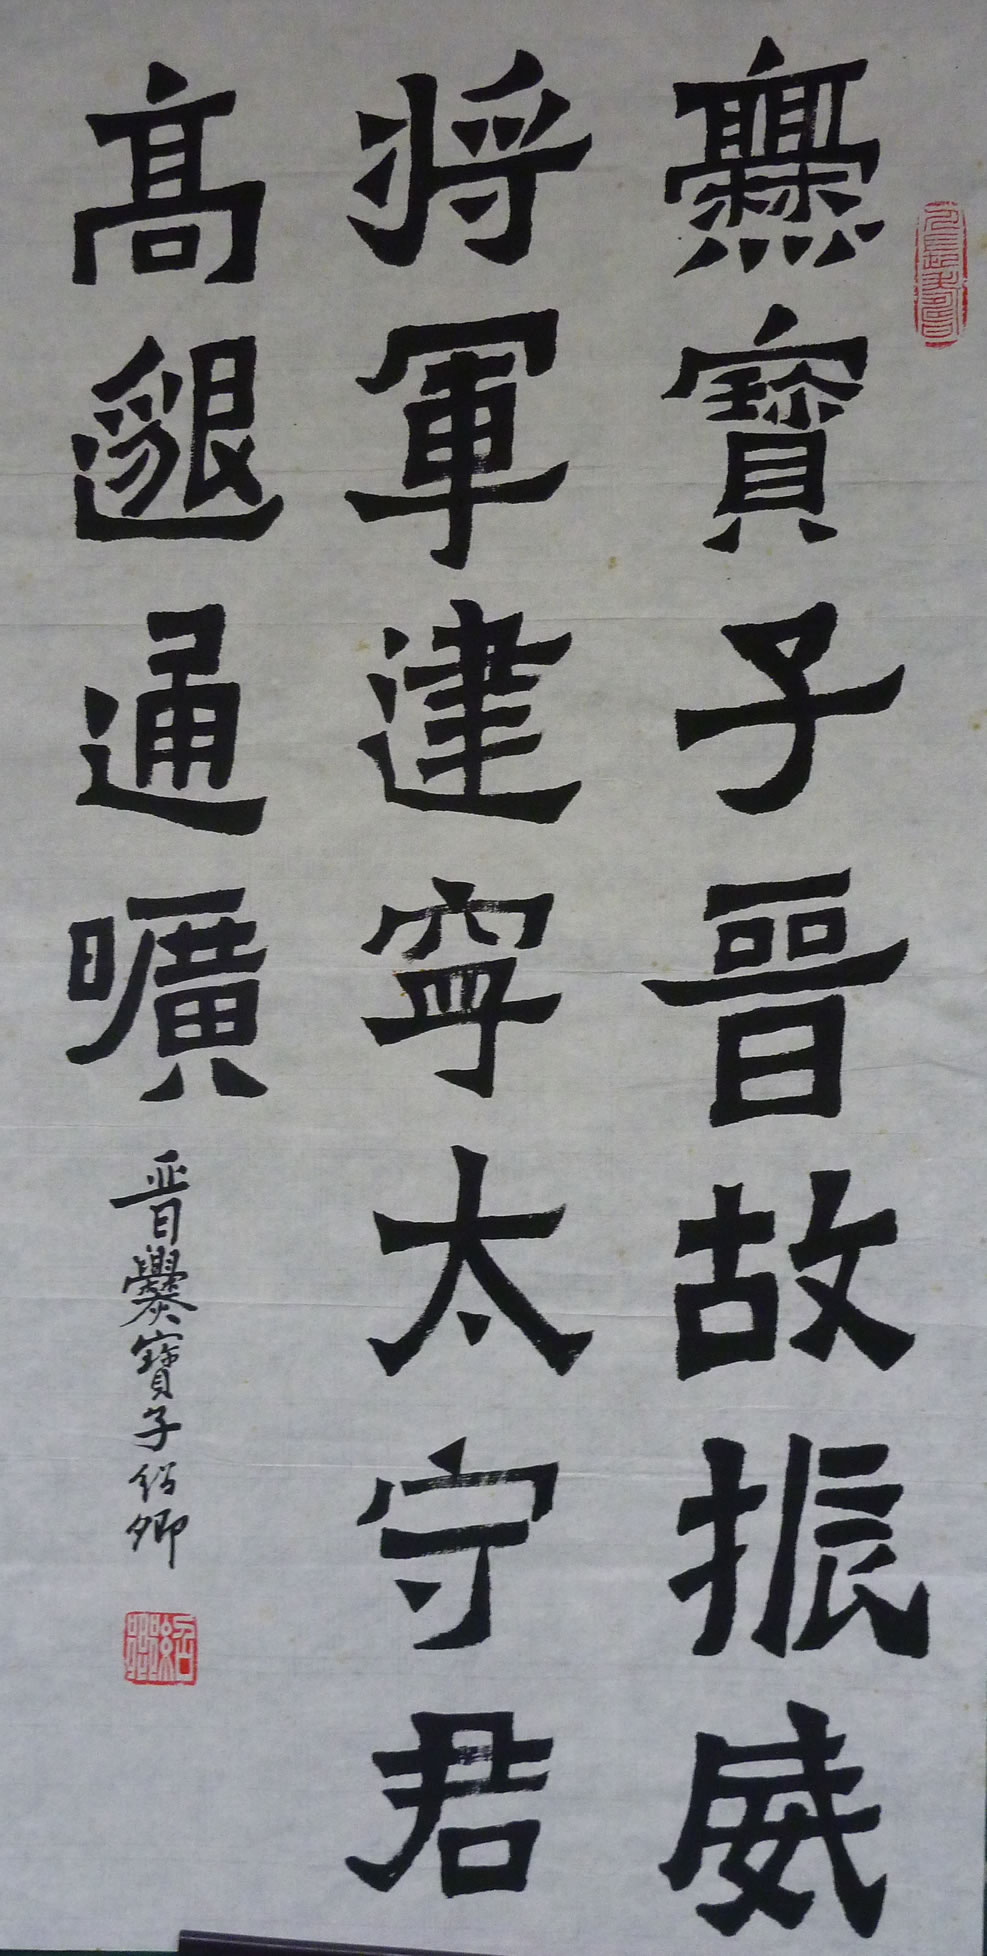 爨寶子晉故振威
將軍建寧太守君
高邈通曠
晋爨寶子紹卿
紹卿